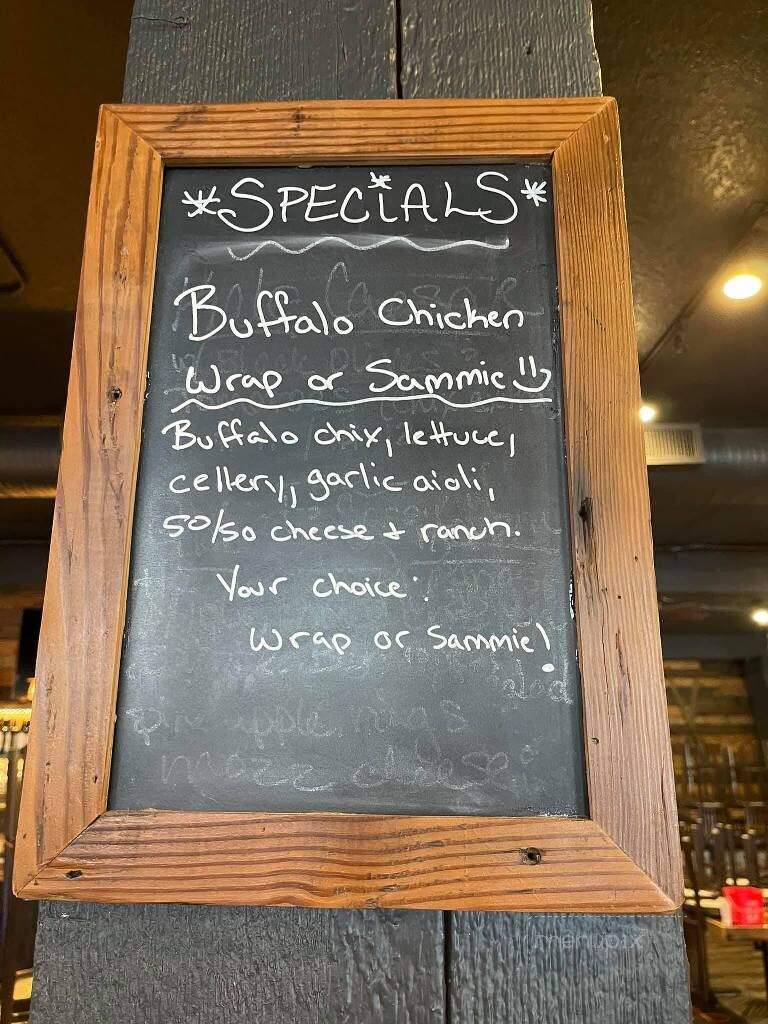 *SPECiALS*
Buffalo Chicken
Wrap or Sammie!!
Buffalo chix, lettuce,
cellery, garlic aioli,
50/50 cheese + ranch.
Your choice:
Wrap or Sammie!
pineapple rings
mozz cheese
menupix